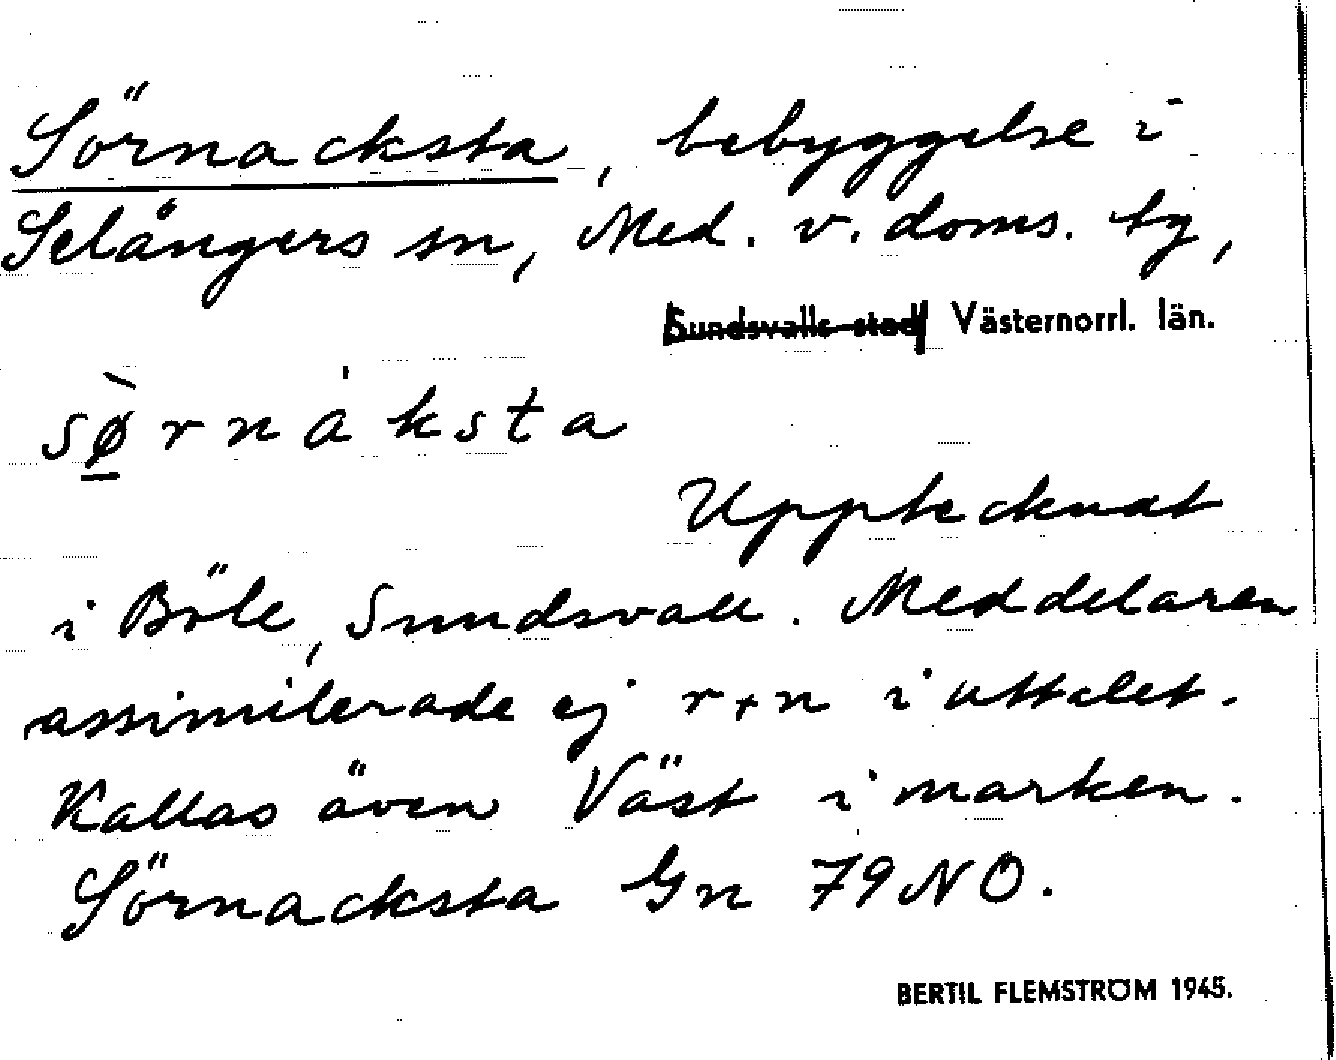 Sörnacksta, bebyggelse i
Selångers sn, Med. v. doms. tg,
Sundsvalls stad Västernorrl. län.
sø̲̀rnáksta
Upptecknat
i Böle, Sundsvall. Meddelaren
assimilerade ej r+n i uttalet.
Kallas även Väst i marken.
Sörnacksta Gn 79NO.
BERTIL FLEMSTRÖM 1945.